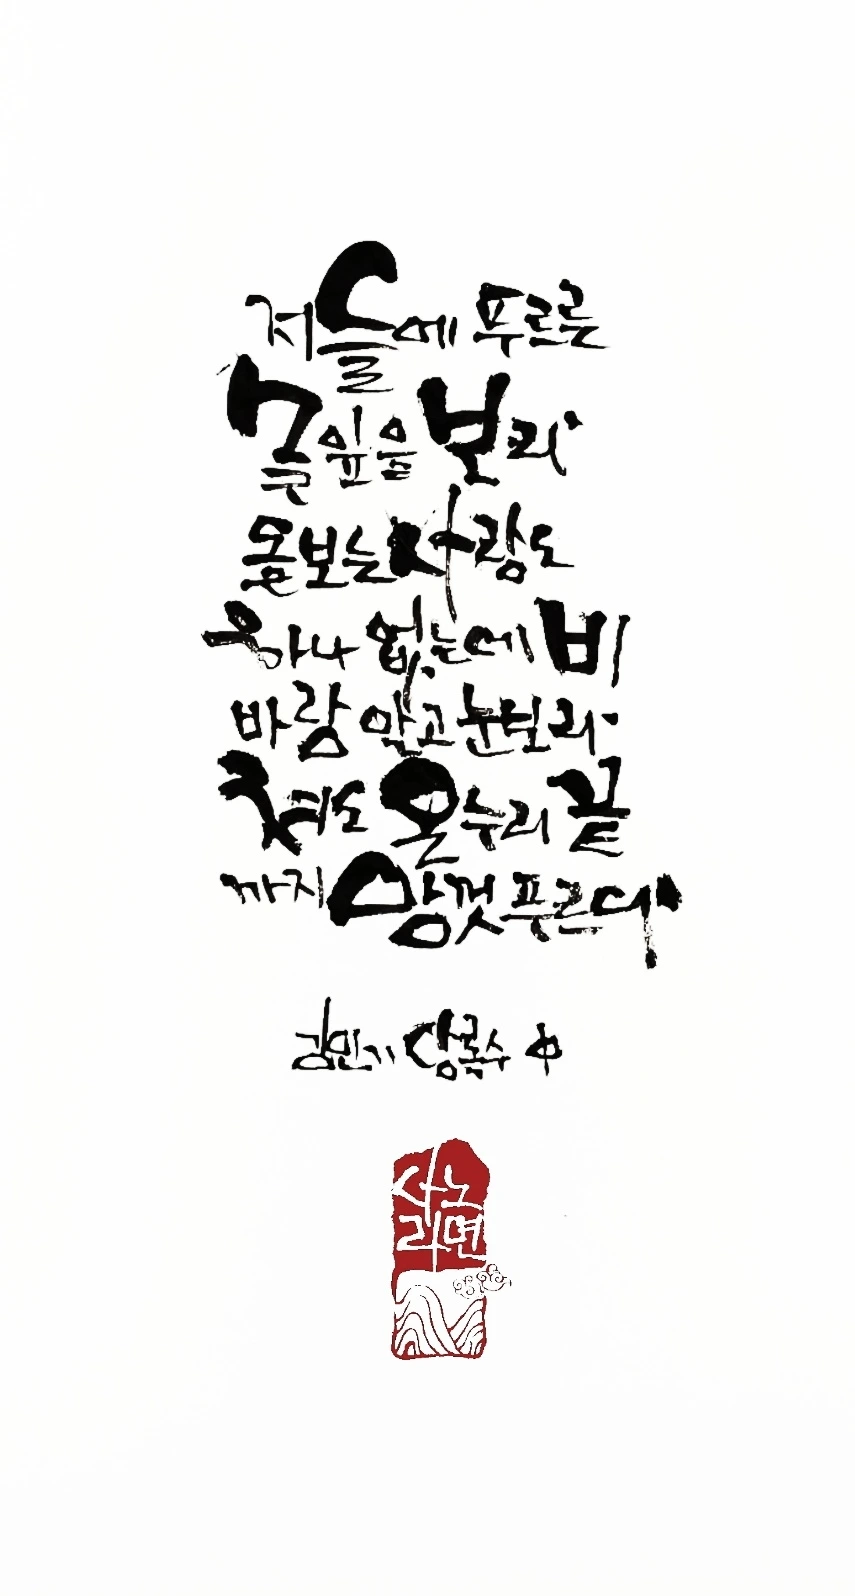 저 들에 푸르른
솔잎을 보라
돌보는 사람도
하나 없는데 비
바람 맞고 눈보라
쳐도 온누리 끝
까지 맘껏 푸르다
김민기 상록수 中
사노
라면